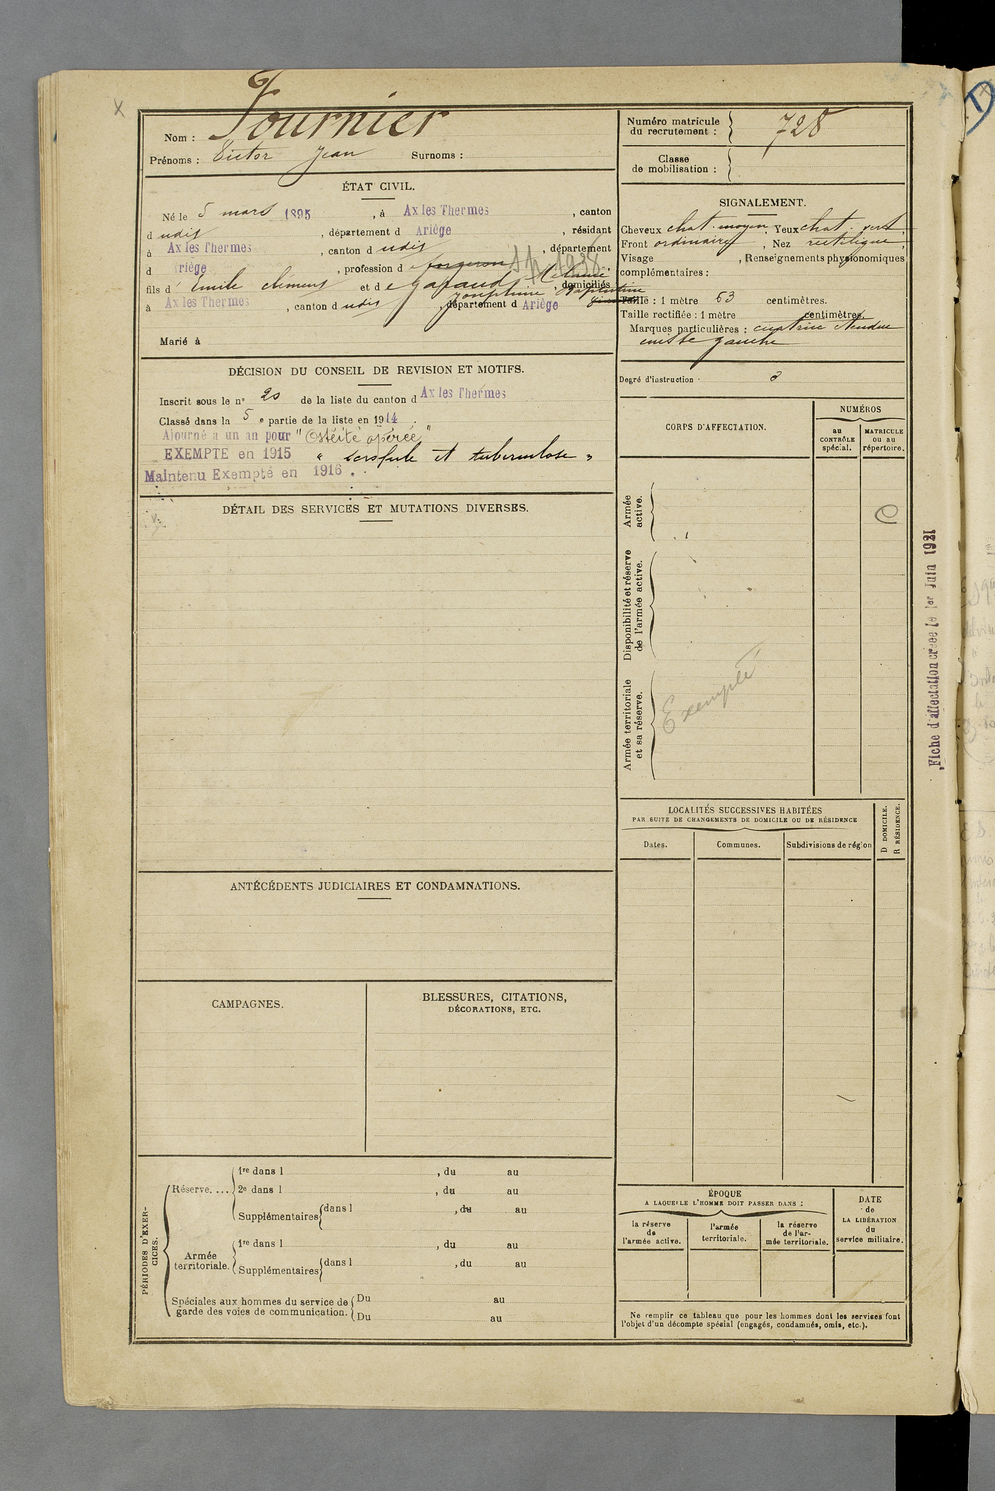 Nom : Fournier
Prénoms : Victor Jean Surnoms :
Numéro matricule du recrutement : 728
Classe de mobilisation :
ÉTAT CIVIL.
Né le 5 mars 1895, à Ax les Thermes, canton
d udis, département d Ariège, résidant
à Ax les Thermes, canton d udis, département
d Ariège, profession d forgeron
fils d' Emile clemens et de Gafaud domiciliés
Josephine
à Ax les Thermes, canton d udis, département d Ariège
Marié à
DÉCISION DU CONSEIL DE REVISION ET MOTIFS.
Inscrit sous le n° 20 de la liste du canton d Ax les Thermes
Classé dans la 5 e partie de la liste en 1914.
Ajourné a un an pour "Ostéite opérée"
EXEMPTE en 1915 " scrofule et tuberculose "
Maintenu Exempté en 1916.
DÉTAIL DES SERVICES ET MUTATIONS DIVERSES.
ANTÉCÉDENTS JUDICIAIRES ET CONDAMNATIONS.
CAMPAGNES.
BLESSURES, CITATIONS,
DÉCORATIONS, ETC.
PÉRIODES D'EXERCICES.
Réserve....
1re dans l , du au
2e dans l , du au
Supplémentaires dans l , du au
Armée territoriale.
1re dans l , du au
Supplémentaires dans l , du au
Spéciales aux hommes du service de garde des voies de communication.
Du au
Du au
SIGNALEMENT.
Cheveux chat. moyen, Yeux chat. vert
Front ordinaire, Nez rectiligne
Visage , Renseignements physionomiques
complémentaires :
Taille : 1 mètre 63 centimètres.
Taille rectifiée : 1 mètre centimètres.
Marques particulières : cicatrice étendue
cuisse gauche
Degré d'instruction : 3
CORPS D'AFFECTATION.
NUMÉROS
au CONTRÔLE spécial.
MATRICULE ou au répertoire.
Armée active.
Disponibilité et réserve de l'armée active.
Armée territoriale et sa réserve.
Exempté
Fiche d'affectation créée le 1er Juin 1921
LOCALITÉS SUCCESSIVES HABITÉES
PAR SUITE DE CHANGEMENTS DE DOMICILE OU DE RÉSIDENCE
Dates.
Communes.
Subdivisions de région
D DOMICILE.
R RÉSIDENCE.
ÉPOQUE
A LAQUELLE L'HOMME DOIT PASSER DANS :
la réserve de l'armée active.
l'armée territoriale.
la réserve de l'armée territoriale.
DATE de LA LIBÉRATION du service militaire.
Ne remplir ce tableau que pour les hommes dont les services font
l'objet d'un décompte spécial (engagés, condamnés, omis, etc.).